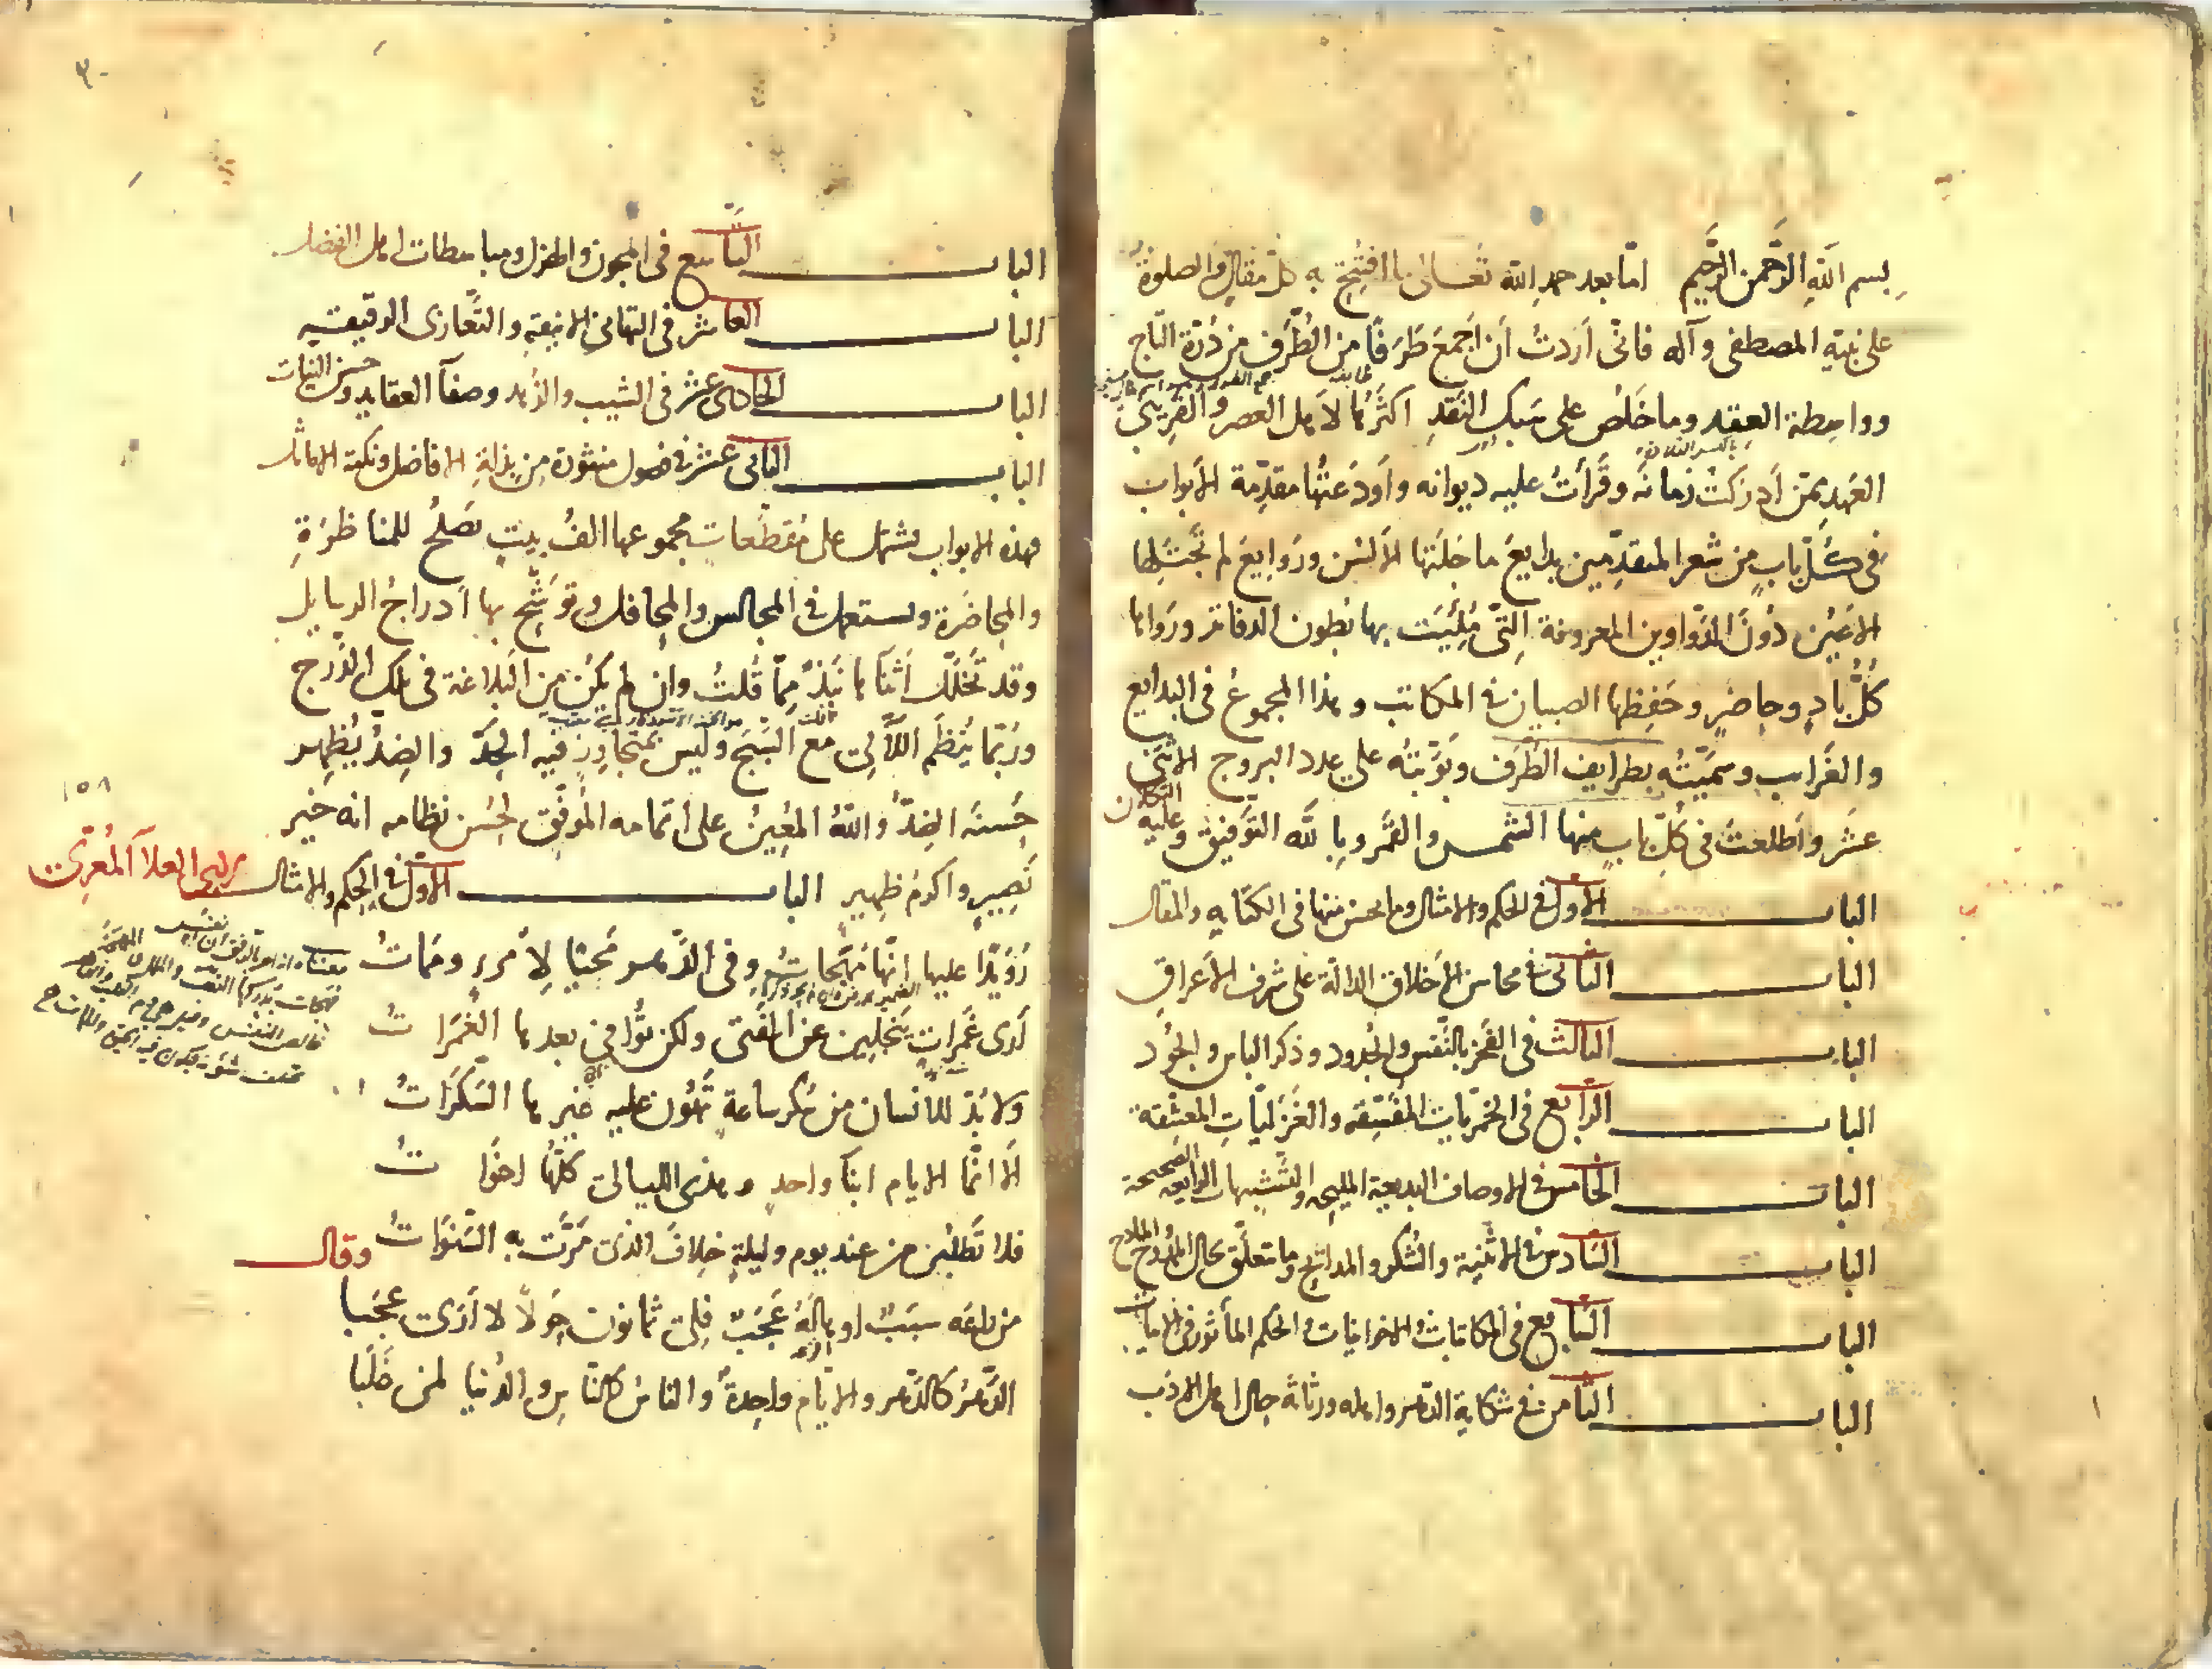 بسم اللّه الرّحمن الرّحيم امّا بعد حمد اللّه تعالى ما افتتح به كلّ مقال والصلوة
على نبيّه المصطفى وآله فانّى أردتُ أن أجمعَ طرَفًا من الطُّرَف من دُرّة التّاج
وواسِطة العِقد وما خَلَصَ على سَبك النّقدِ اكثرُها لأهل العصر والقريبى
العَهدِ ممّن أدركتُ زمانَه وقَرأتُ عليه ديوانه وأودَعتُها مقدّمة الأبواب
فى كُلّ بابٍ من شعر المتقدّمين بدايعَ ما جلَتها الألسُن ورَوايعَ لم تجتلِها
الأعيُن دُونَ الدّواوين المعروفة الّتى مُلِئَت بها بُطون الدفاتر ورَواها
كُلُّ بادٍ وحاضرٍ وحَفِظها الصبيان فى المكاتب وهذا المجموعُ فى البدايع
والغَرايب وسمّيتُه بطرايف الطُّرَف وبوّبتُه على عدد البروج الاثنَى
عشَر وأطلعتُ فى كلّ بابٍ منها الشمس والقمر وباللّه التّوفيق وعليه التّكلان
الباب الاوّل فى الحكم والامثال وما يحسن منها فى الكتابه والمقال
الباب الثّانى فى محاسن الاخلاق الدالّة على شرف الأعراق
الباب الثّالث فى الفخر بالنّفس والجُدود وذكر الباس والجُود
الباب الرّابع فى الخمريّات المُفَتِّقه والغَزَليّاتِ المعشِّقة
الباب الخامس فى الاوصاف البديعية المليحه والتّشبيهات الرايعه الصحيحة
الباب السّادس فى الاثنية والشّكر والمدايح وما تعلّق بحال المُدّاح
الباب السّابع فى المكاتبات والاخوانيات والحكم المأثور فى الابيات
الباب الثّامن فى شكاية الدّهر واهله ورثاثة حال اهل الادب
الباب التّاسع فى المجون والهزل ومباسطات اهل الفضل
الباب العاشر فى التهانى الانيقة والتّعازى الرقيقه
الباب الحادى عشر فى الشيب والزّهد وصفآ العقايد وحسن النيات
الباب الثانى عشر فى فصول منثورة من بذلةِ الافاضل ونكتة الاماثل
فهذه الابواب تشتمل على مُقطّعات مجموعها الفُ بيتٍ تصلحُ للمناظرَةِ
والمحاضَرة وتستعمل فى المجالس والمحافل وتوَشَّح بها أدراجُ الرسايل
وقد تخلّل أثنآها نُبَذٌ مِمّا قُلتُ وان لم يكُن من البلاغة فى تلك الدّرج
ورُبّما يُنظَم اللآلى مع السَّبَج وليس بمتجاوِزٍ فيه الحدّ والضِدُّ يُظهِر
حُسنَه الضِدُّ واللّهُ المُعينُ على اتمامه المُوفِّق لحُسن نظامه انه خير
نَصِيرٍ واكرمُ ظهيرٍ الباب الاوّل فى الحِكم والامثال لابى العلآ المعرّى
رُوَيدًا عليها إنّها مُهَجاتُ وفى الدّهر مَحيًا لِامرءٍ ومَماتُ
أرى غَمَراتٍ يَنجَلِينَ عن الفتى ولكن تُوافى بعدها الغَمَراتُ
ولا بُدّ للانسان من سُكر ساعة تهُون عليه غيرها السَّكَراتُ
ألا انّما الايام ابنآ واحدٍ وهذى الليالى كلّها اخَواتُ
فلا تطلُبَن من عند يوم وليلةٍ خلافَ الذى مَرّت به السّنَواتُ وقال
من راعَه سبَبٌ او هالَهُ عَجَبٌ فلى ثمانون حَولًا لا أرى عجَبا
الدّهرُ كالدّهر والايّام واحدةٌ والناسُ كالنّاسِ والدُّنيا لمن غَلَبا
١٥٨